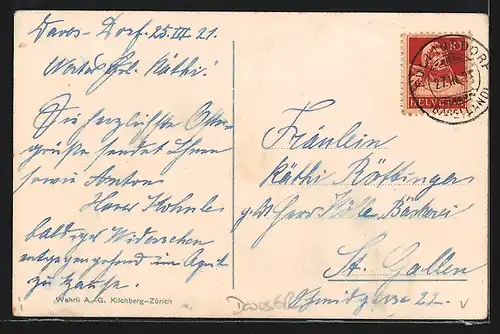 Davos-Dorf. 25.III.21.
Wertes Frl. Käthi!
Die herzlichste Oster-
grüsse sendet Ihnen
sowie Anton
Ihrer
baldiges Wiedersehen
entgegensehend im April
zu Hause.
Wehrli A.-G. Kilchberg-Zürich
HELVETIA
10
DORF
27.III.
Fräulein
Käthi Röttinger
Herr Bäckerei
St. Gallen
Schmidgasse 22.